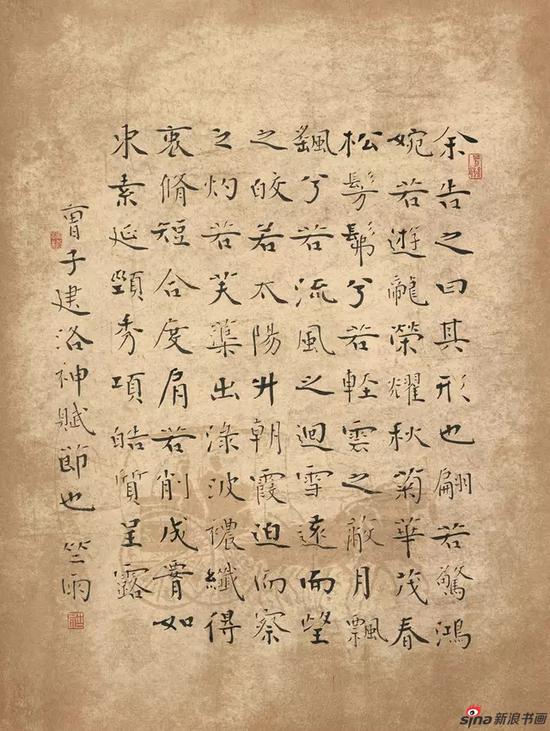 余告之曰其形也翩若驚鴻
婉若遊龍榮耀秋菊華茂春
松髣髴兮若輕雲之蔽月飄
飖兮若流風之迴雪遠而望
之皎若太陽升朝霞迫而察
之灼若芙蕖出淥波襛纖得
衷脩短合度肩若削成腰如
束素延頸秀項皓質呈露
曹子建洛神賦節也 竺雨
sina新浪书画